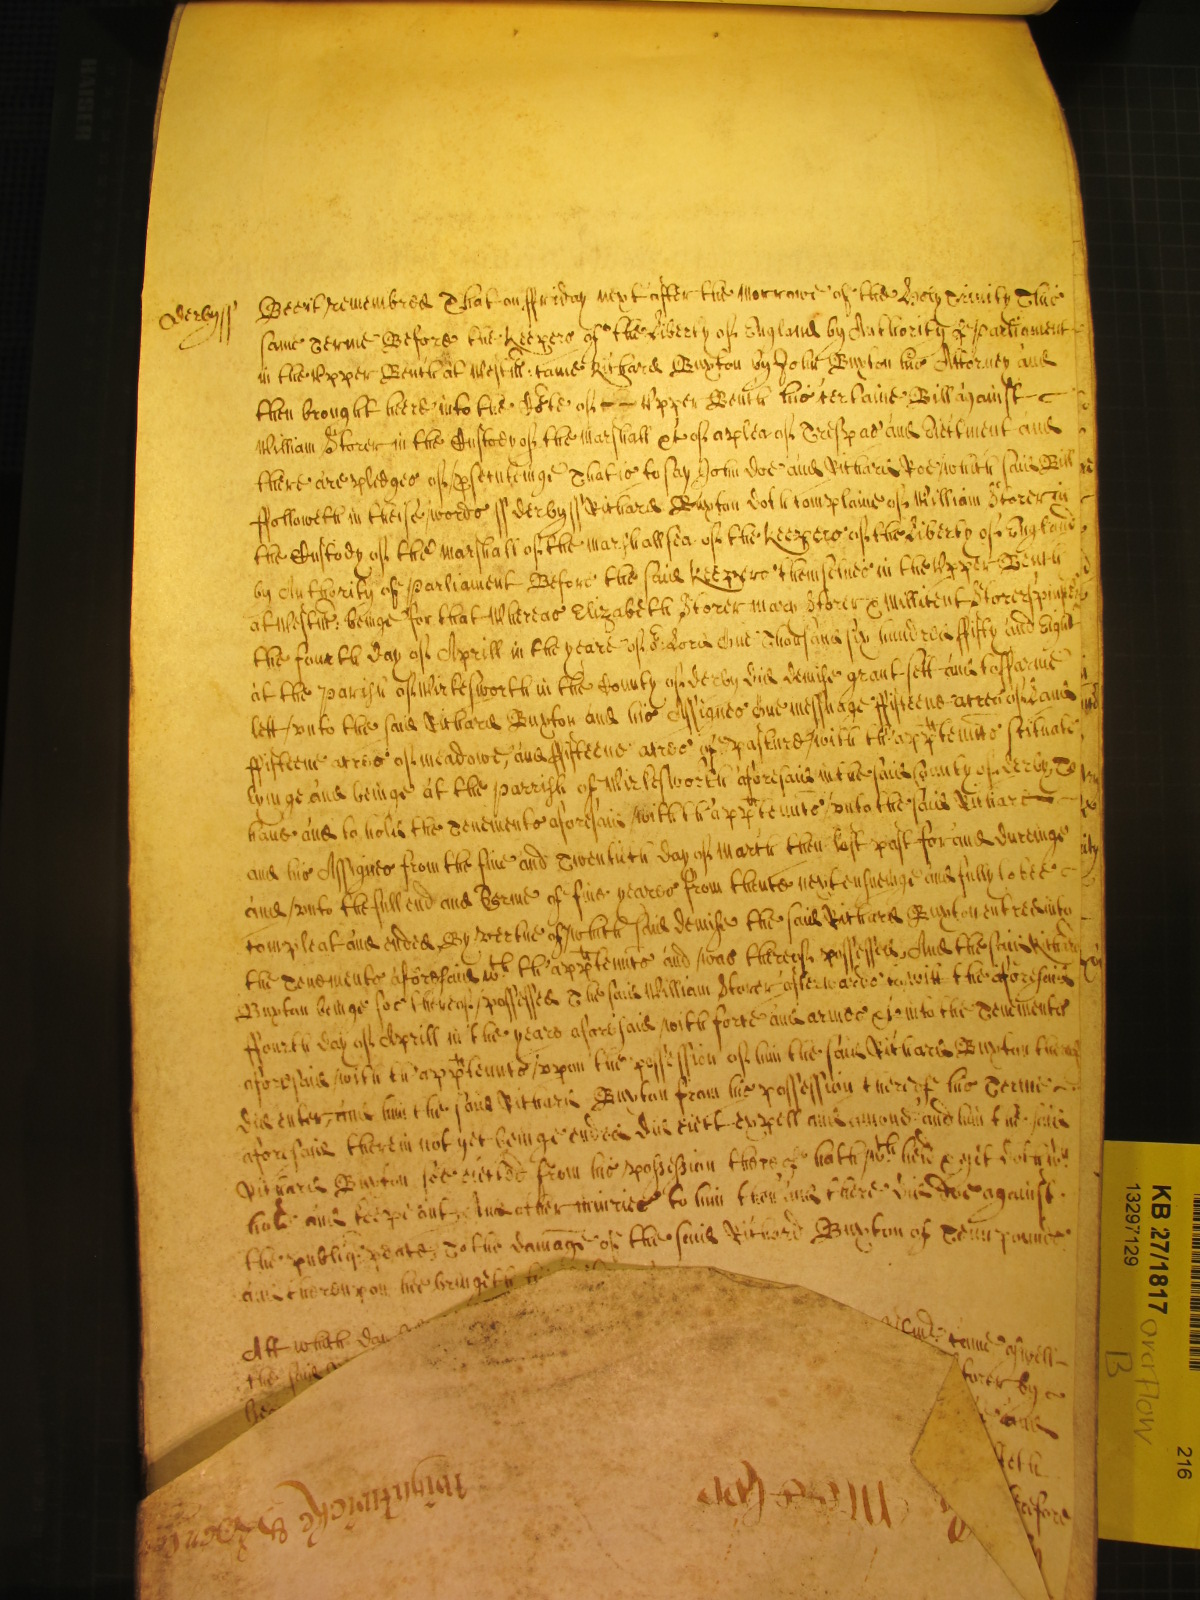 Derby ss Beeit remembred That on ffriday next after the Morrowe of the Holy Trinity This
same Terme Before the Keepers of the Liberty of England by Authority of Parliament
in the Upper Bench at Westm: came Richard Buxton by John Buxton his Attorney and
then brought here into the Co:te of Upper Bench his certaine Bill against
William Storer in the Custody of the Marshall &c of a plea of Trespas and Eiectment and
there are pledges of p:secuteinge That is to say John Doe and Richard Roe which said Bill
ffolloweth in theise words ss Derby ss Richard Buxton doth complaine of William Storer in
the Custody of the Marshall of the Marshallsea of the Keepers of the Liberty of England
by Authority of Parliament Before the said Keepers themselves in the Upper Bench
at Westm: beinge for that Whereas Elizabeth Storer Mary Storer & Millicent Storer spinsters
the fourth day of Aprill in the yeare of o:r Lord One Thousand six hundred ffifty and Eight
at the parish of Wirkesworth in the County of Derby did demise grant sett and to ffarme
lett unto the said Richard Buxton and his Assignes One messuage ffifteene acres of Land
ffifteene acres of meadowe, and ffifteene acres of pasture with th'app:tennts scituate
lyinge and beinge at the parrish of Wirkesworth aforesaid in the said County of Derby, To
have and to hold the Tenements aforesaid with th'app:tennts unto the said Richard
and his Assignes from the five and Twentieth day of March then last past for and dureinge
and unto the full end and Terme of five yeares from thence next ensueinge and fully to bee
compleat and ended By vertue of which said demise the said Richard Buxton entred into
the Tenements aforesaid w:th th'app:tennts and was thereof possessed And the said Richard
Buxton beinge soe thereof possessed The said William Storer afterwards to witt the aforesaid
ffourth day of Aprill in the yeare aforesaid with force and armes &c into the Tenements
aforesaid with th'app:tennts upon the possession of him the said Richard Buxton thereof
did enter, and him the said Richard Buxton from his possession thereof his Terme
aforesaid therein not yet beinge ended did eiect expell and amond: and him the said
Richard Buxton soe eiected from his possession thereof hath w:th held & yet doth w:th
hold and keepe out, And other iniuries to him then and there did doe against
the publiq: peace, To the damage of the said Richard Buxton of Tenn pounds
and thereupon hee bringeth
Att which day came aswell
the said Storer by
and
before